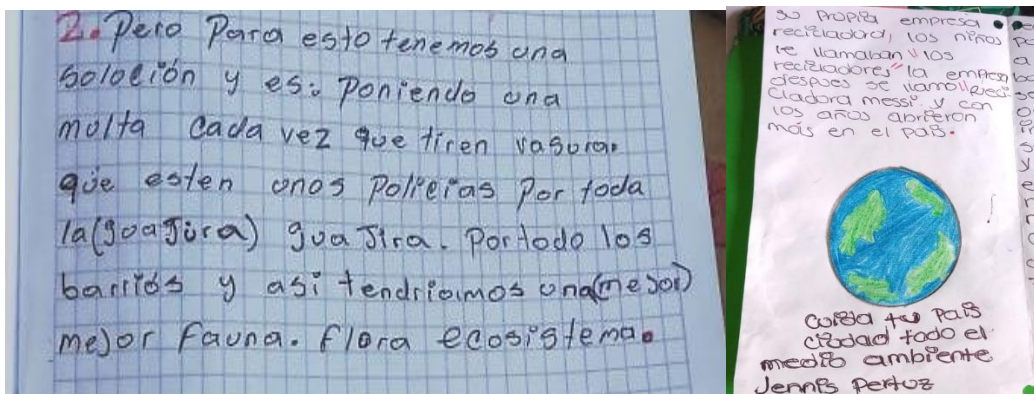 2. Pero Para esto tenemos una
soloción y es: Poniendo una
molta cada vez que tiren vasura.
que esten unos Policías Por toda
la (guajura) guajira. Portodo los
barrios y asi tendriamos una (mejor)
mejor fauna. flora ecosistema.
su propia empresa
recicladora, los niños
le llamaban "los
recicladores" la empresa
despues se llamo "reci
cladora messi" y con
los años abrieron
más en el país.
cuida tu País
ciudad todo el
medio ambiente
Jennis Pertuz